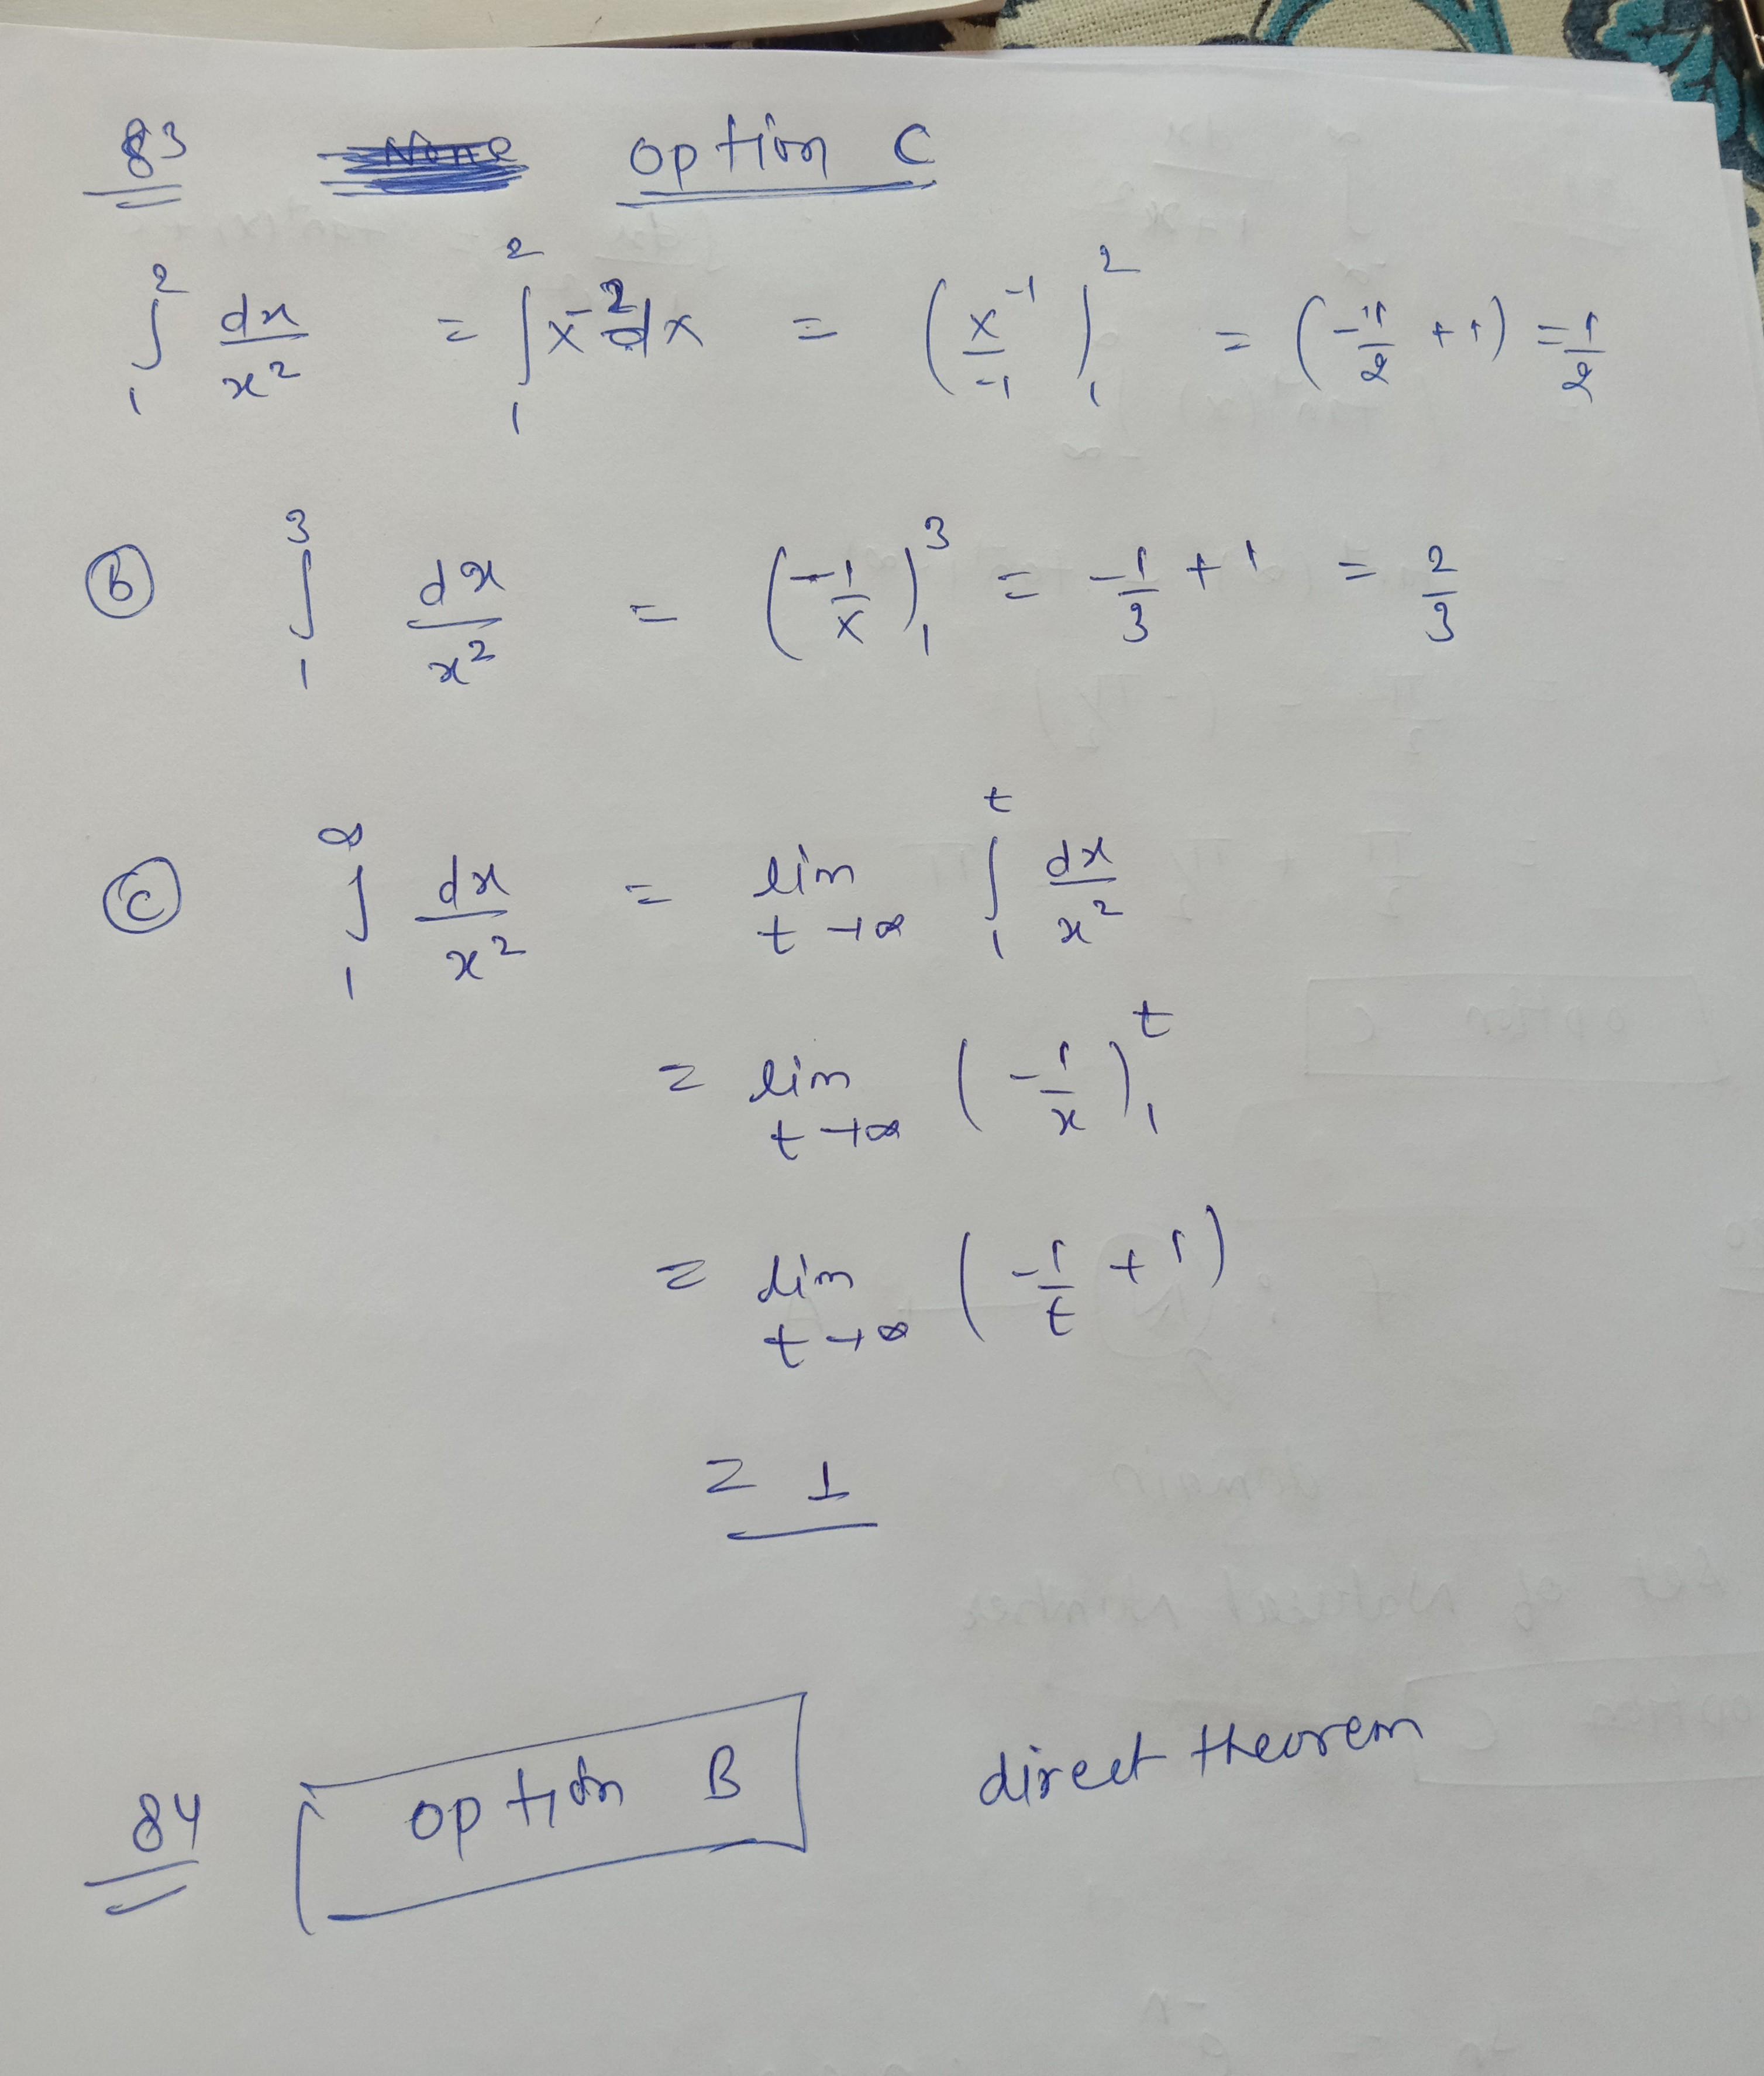 83 None option C
∫₁² dx/x² = ∫₁² x⁻² dx = (x⁻¹/-1)₁² = (-1/2 + 1) = 1/2
(B) ∫₁³ dx/x² = (-1/x)₁³ = -1/3 + 1 = 2/3
(C) ∫₁^∞ dx/x² = lim t→∞ ∫₁ᵗ dx/x²
= lim t→∞ (-1/x)₁ᵗ
= lim t→∞ (-1/t + 1)
= 1
84 option B direct theorem